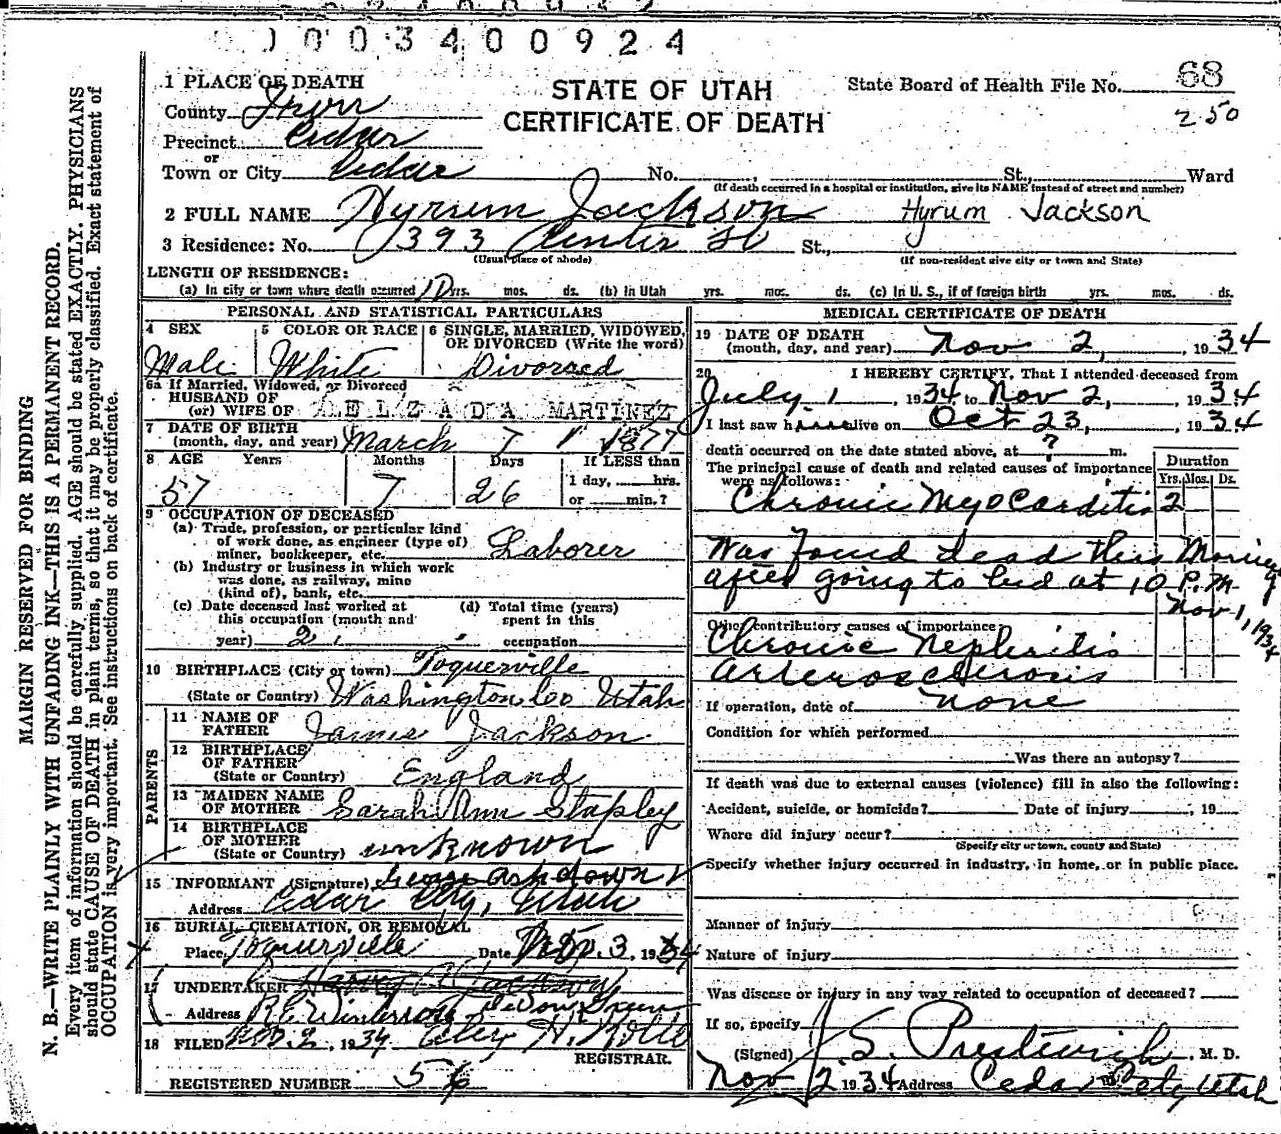 0003400924
1 PLACE OF DEATH
STATE OF UTAH
CERTIFICATE OF DEATH
State Board of Health File No. 68
250
County Iron
Precinct Cedar
or
Town or City Cedar No. , St., Ward
(If death occurred in a hospital or institution, give its NAME instead of street and number)
2 FULL NAME Hyrum Jackson Hyrum Jackson
3 Residence: No. 393 Center St St.,
(Usual place of abode) (If non-resident give city or town and State)
LENGTH OF RESIDENCE:
(a) In city or town where death occurred 10 yrs. mos. ds. (b) In Utah yrs. mos. ds. (c) In U. S., if of foreign birth yrs. mos. ds.
PERSONAL AND STATISTICAL PARTICULARS
4 SEX
Male
5 COLOR OR RACE
White
6 SINGLE, MARRIED, WIDOWED,
OR DIVORCED (Write the word)
Divorsed
6a If Married, Widowed, or Divorced
HUSBAND OF
(or) WIFE OF ELZADA MARTINEZ
7 DATE OF BIRTH
(month, day, and year) March 7 1877
8 AGE Years Months Days If LESS than
1 day, hrs.
57 7 26 or min.?
9 OCCUPATION OF DECEASED
(a) Trade, profession, or particular kind
of work done, as engineer (type of)
miner, bookkeeper, etc. Laborer
(b) Industry or business in which work
was done, as railway, mine
(kind of), bank, etc.
(c) Date deceased last worked at
this occupation (month and
year) 2
(d) Total time (years)
spent in this
occupation
10 BIRTHPLACE (City or town) Toquerville
(State or Country) Washington Co Utah
PARENTS
11 NAME OF
FATHER James Jackson
12 BIRTHPLACE
OF FATHER
(State or Country) England
13 MAIDEN NAME
OF MOTHER Sarah Ann Stapley
14 BIRTHPLACE
OF MOTHER
(State or Country) unknown
15 INFORMANT (Signature) George Ashdown
Address Cedar City, Utah
16 BURIAL, CREMATION, OR REMOVAL
Place Toquerville Date Nov. 3, 1934
17 UNDERTAKER
Address
18 FILED Nov. 2, 1934
REGISTRAR.
REGISTERED NUMBER 56
MEDICAL CERTIFICATE OF DEATH
19 DATE OF DEATH
(month, day, and year) Nov 2, 1934
20 I HEREBY CERTIFY, That I attended deceased from
July 1, 1934 to Nov 2, 1934
I last saw h alive on Oct 23, 1934
death occurred on the date stated above, at ? m.
The principal cause of death and related causes of importance
were as follows:
Duration
Yrs. Mos. Ds.
Chronic Myocarditis 2
Was found dead this Morning
after going to bed at 10 P.M
Nov 1, 1934
Other contributory causes of importance:
Chronic Nephritis
Arterosclerosis
If operation, date of none
Condition for which performed
Was there an autopsy?
If death was due to external causes (violence) fill in also the following:
Accident, suicide, or homicide? Date of injury , 19
Where did injury occur?
(Specify city or town, county and State)
Specify whether injury occurred in industry, in home, or in public place.
Manner of injury
Nature of injury
Was disease or injury in any way related to occupation of deceased?
If so, specify
(Signed) J. S. Prestwich, M. D.
Nov 2 1934 Address Cedar City Utah
MARGIN RESERVED FOR BINDING
N. B.—WRITE PLAINLY WITH UNFADING INK—THIS IS A PERMANENT RECORD.
Every item of information should be carefully supplied. AGE should be stated EXACTLY. PHYSICIANS
should state CAUSE OF DEATH in plain terms, so that it may be properly classified. Exact statement of
OCCUPATION is very important. See instructions on back of certificate.